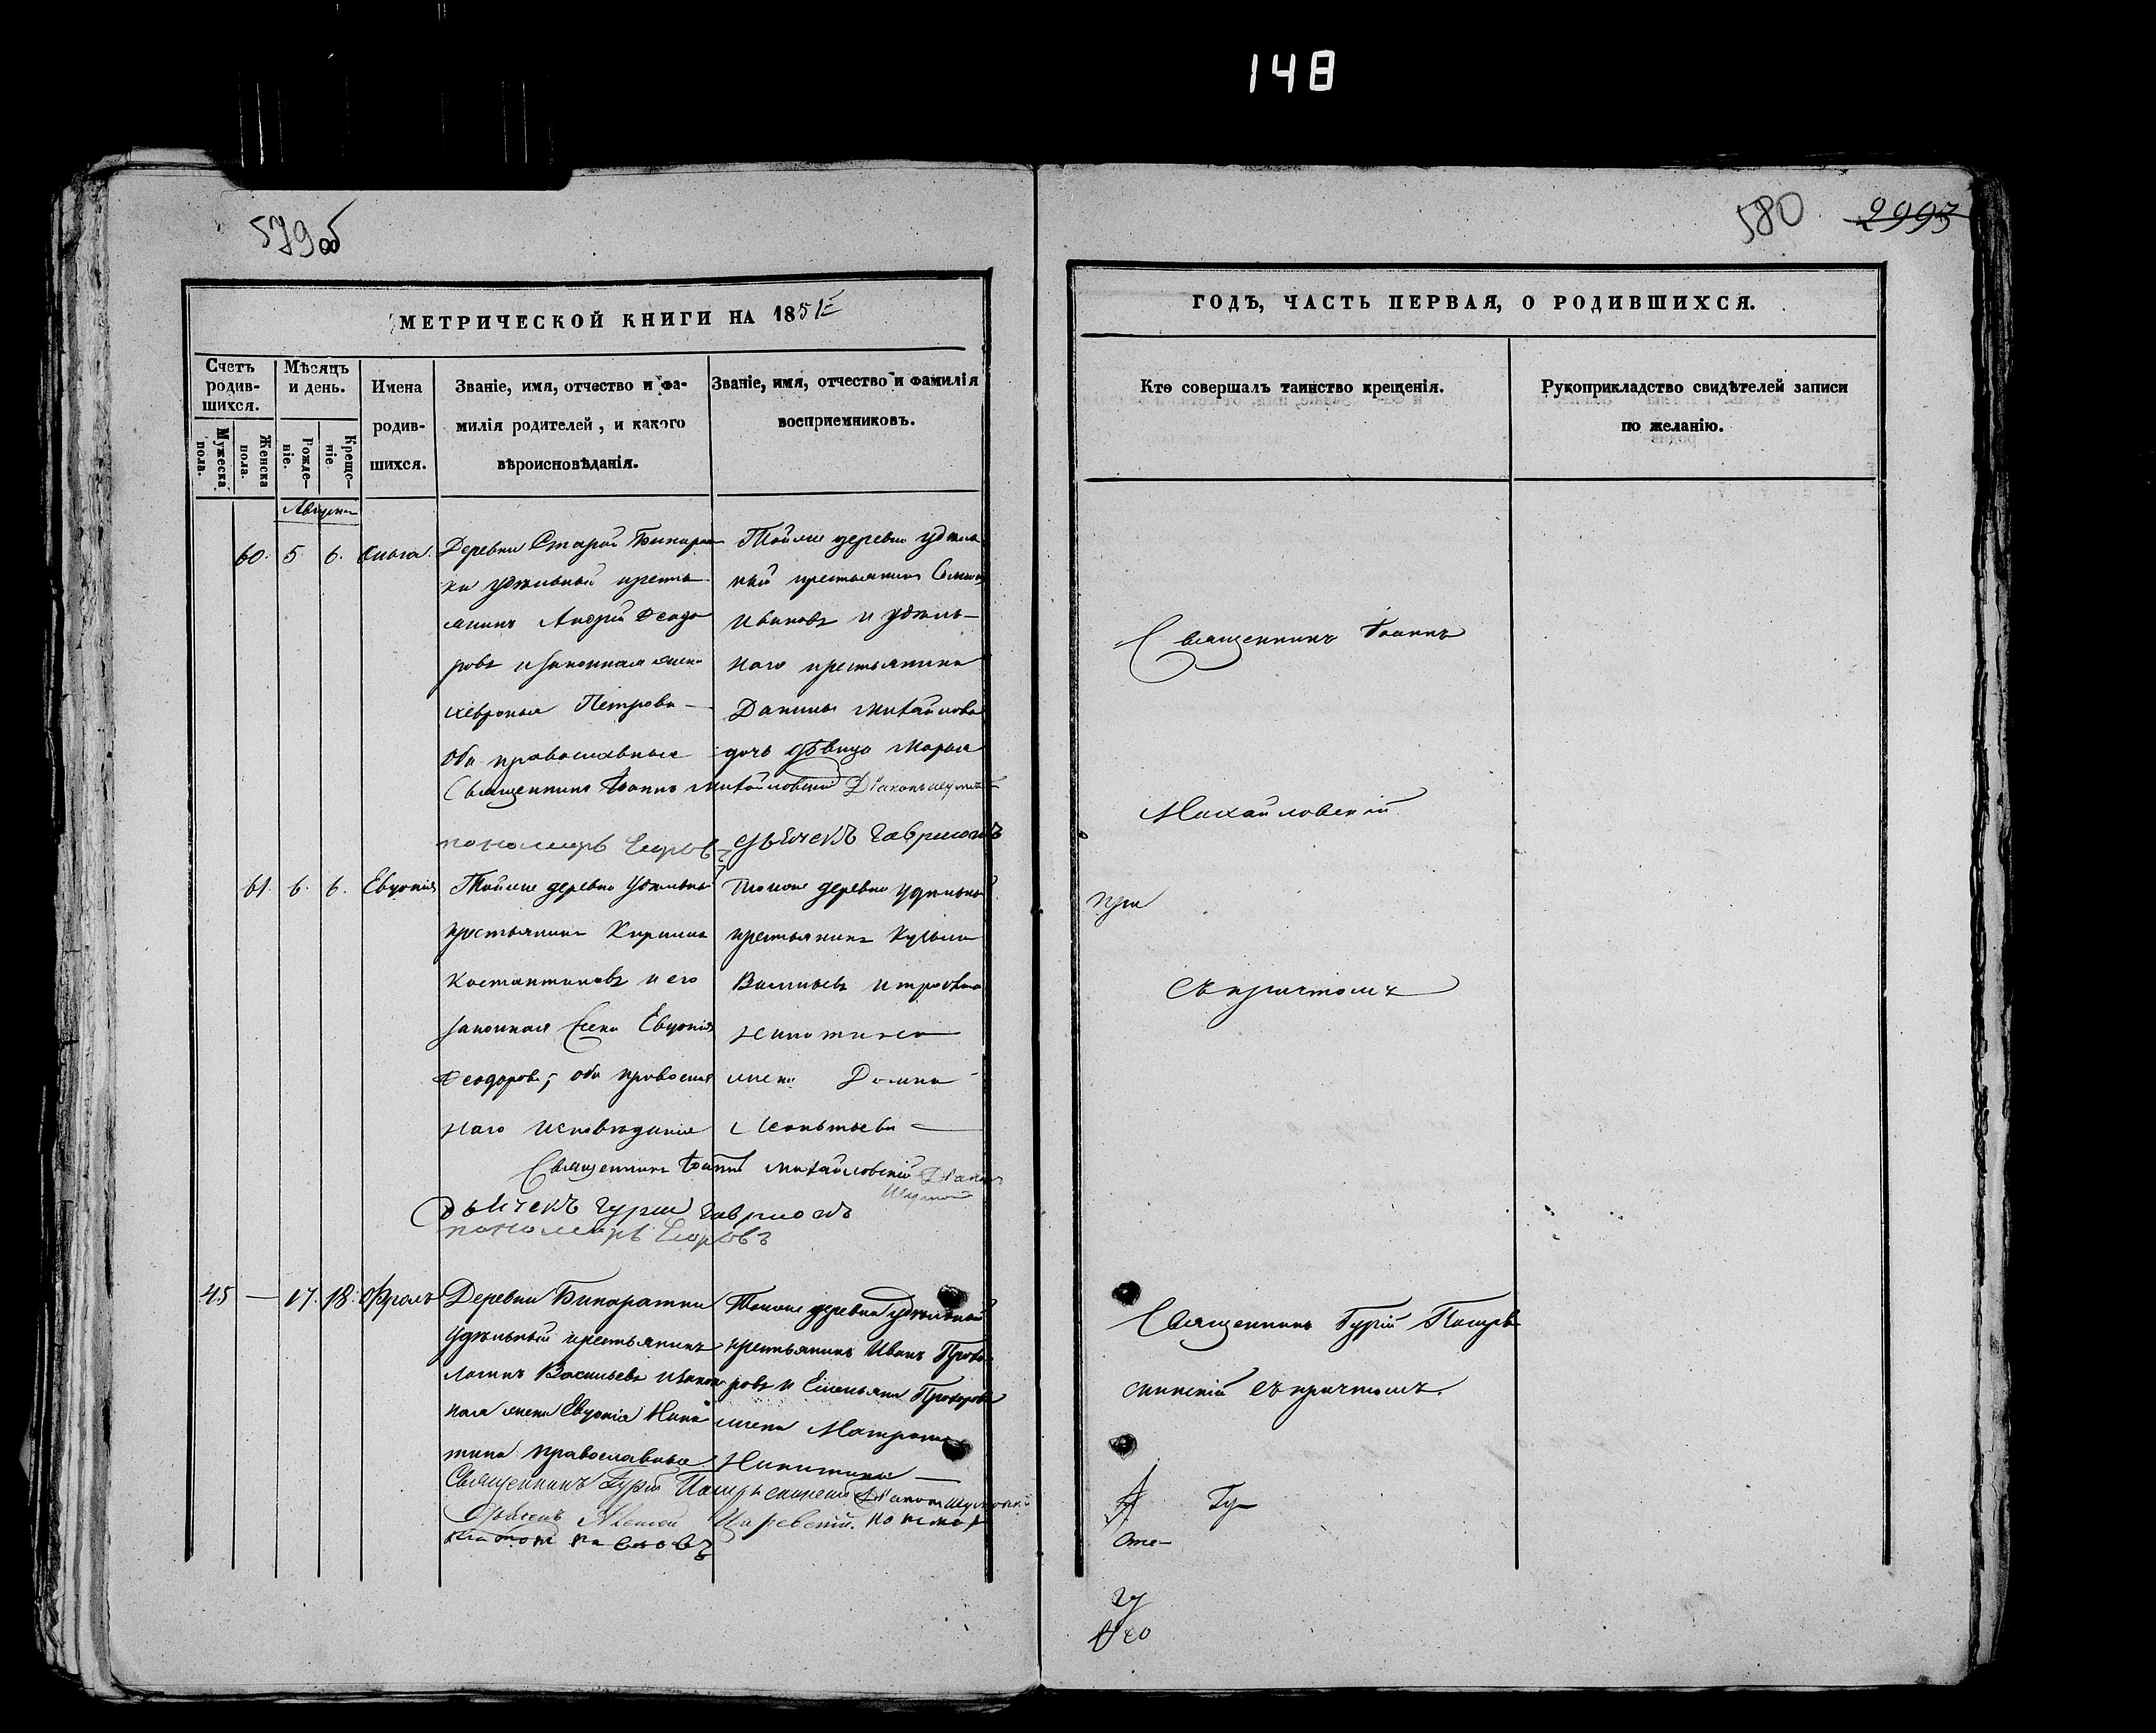 148
579об
580 2993
МЕТРИЧЕСКОЙ КНИГИ НА 1851й
ГОДЪ, ЧАСТЬ ПЕРВАЯ, О РОДИВШИХСЯ.
Счетъ родив-шихся.
Мужеска пола.
Женска пола.
Мѣсяцъ и день.
Рожде-ніе.
Креще-ніе.
Имена
родив-
шихся.
Званіе, имя, отчество и фа-
милія родителей, и какого
вѣроисповѣданія.
Званіе, имя, отчество и фамилія
воспріемниковъ.
Кто совершалъ таинство крещенія.
Рукоприкладство свидѣтелей записи
по желанію.
Августъ
60. 5. 6. Ольга.
Деревни Старой
удѣльный кресть
янинъ Андрей Феодо
ровъ и законная жена
Хевронья Петрова
оба православные
Тойже деревни удѣль
ный крестьянинъ
Ивановъ и удѣль-
наго крестьянина
Данилы Михайлова
дочь дѣвица Марья
Священникъ Іоаннъ Михайловскій Діаконъ
пономарь Егоровъ дьячекъ Гавриловъ
Священникъ Іоаннъ
Михайловскій
съ причтомъ
при
61. 6. 6. Евдокія
Тойже деревни удѣльный
крестьянинъ Кирилла
Костантиновъ и его
законная жена Евдокія
Феодорова, оба православ
наго исповѣданія
Тойже деревни удѣльный
крестьянинъ Кузьма
Васильевъ и
Никитина
жена Домна
Леонтьева
Священникъ Іоаннъ Михайловскій Діаконъ
дьячекъ Гурій Гавриловъ
пономарь Егоровъ
45 — 17. 18. Фролъ
Деревни Бикаратки
удѣльный крестьянинъ
Логинъ Васильевъ и закон
ная жена Евдокія Ники
тина православные
Тойже деревни удѣльный
крестьянинъ Иванъ Прохо
ровъ и Емельяна Прохорова
жена Матрона
Никитина
Священникъ Гурій Діаконъ
Дьячекъ Алексей Царевскій. Пономар
Священникъ Гурій
съ причтомъ.
Гу-